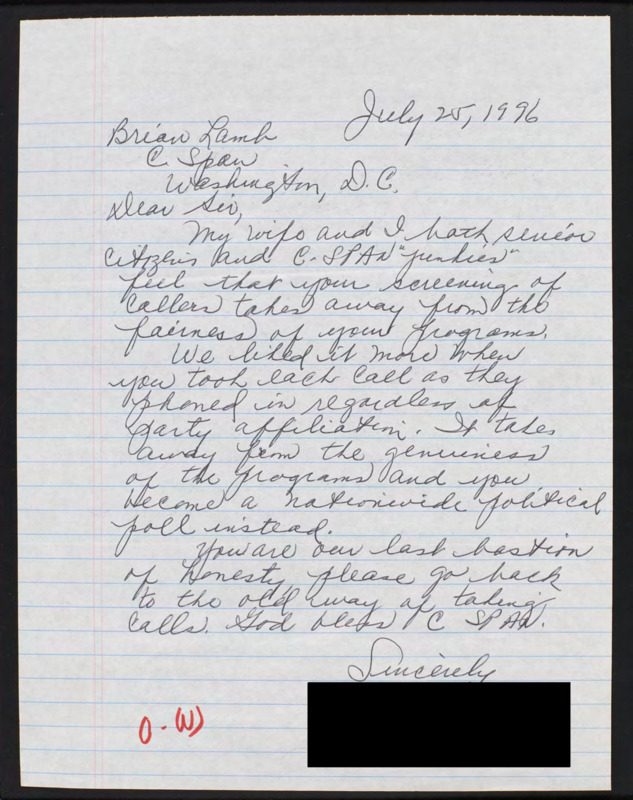 July 25, 1996
Brian Lamb
C. Span
Washington, D.C.
Dear Sir,
My wife and I both senior
citizens and C-SPAN "junkies"
feel that your screening of
callers takes away from the
fairness of your programs.
We liked it more when
you took each call as they
phoned in regardless of
party affiliation. It takes
away from the genuiness
of the programs and you
become a nationwide political
poll instead.
You are our last bastion
of honesty please go back
to the old way of taking
calls. God bless C SPAN.
Sincerely
O-(W)